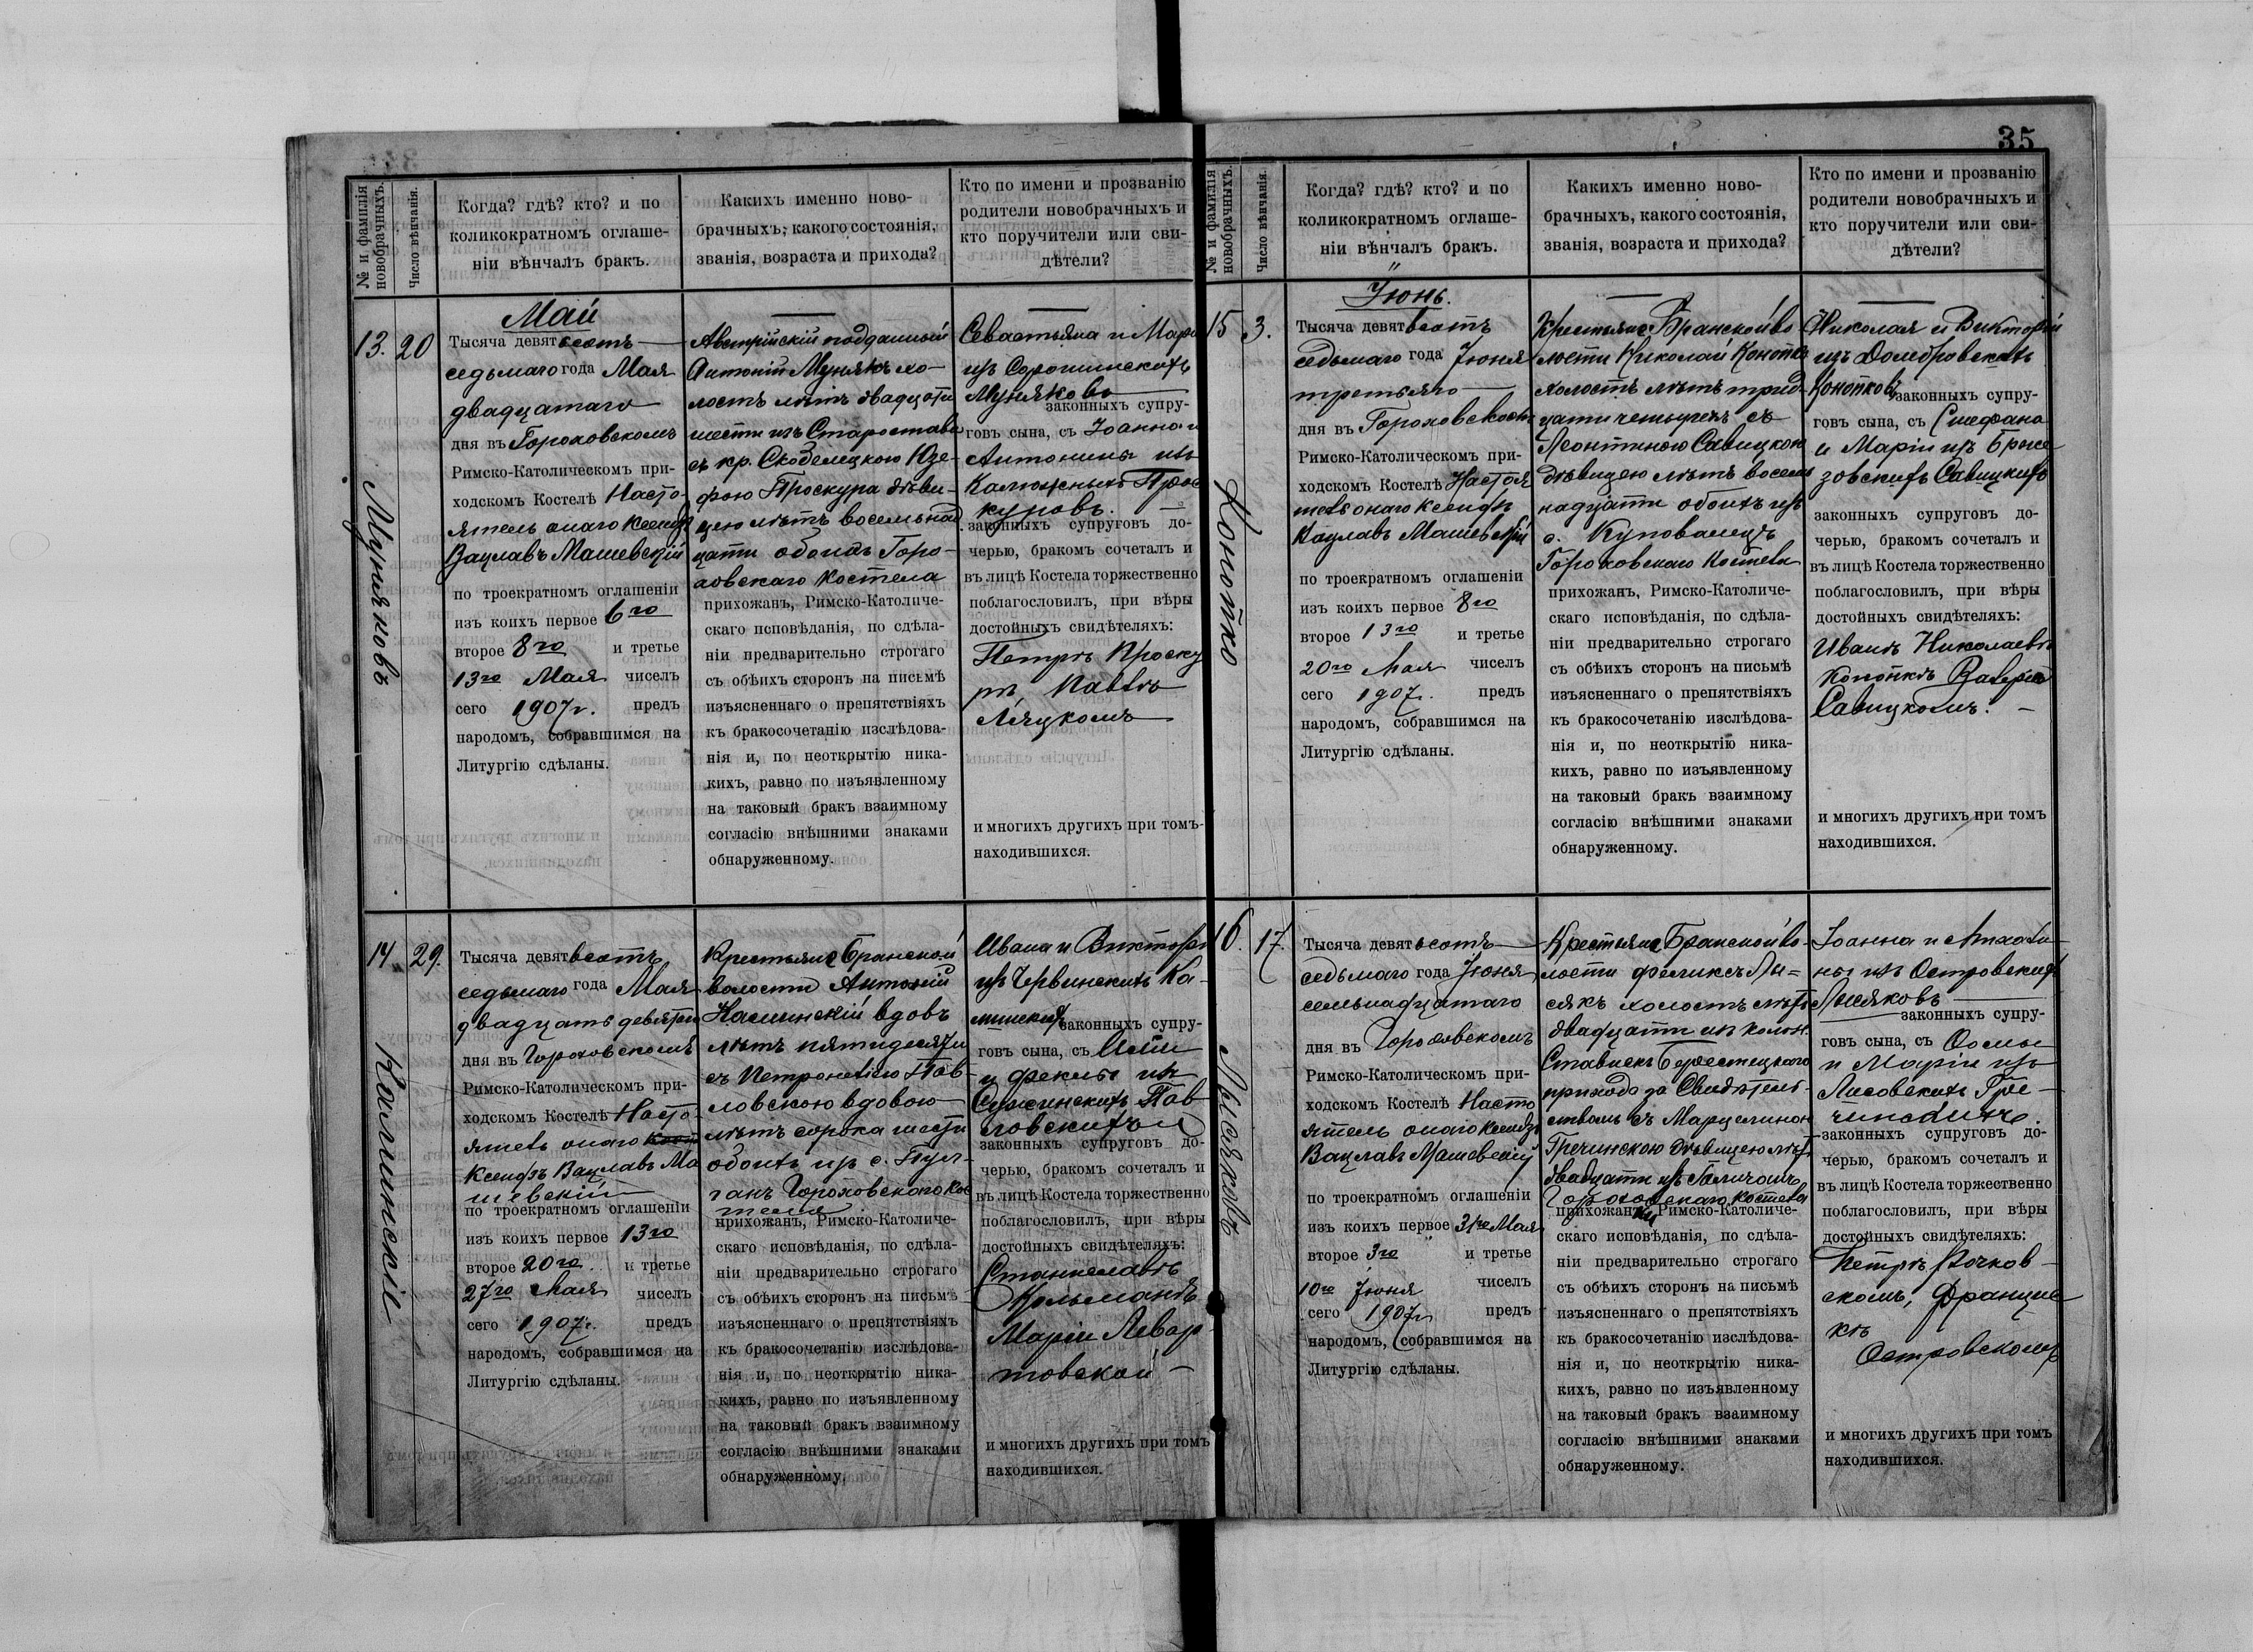 35
№ и фамилія
новобрачныхъ.
Число вѣнчанія.
Когда? гдѣ? кто? и по
коликократномъ оглаше-
ніи вѣнчалъ бракъ.
Какихъ именно ново-
брачныхъ, какого состоянія,
званія, возраста и прихода?
Кто по имени и прозванію
родители новобрачныхъ и
кто поручители или сви-
дѣтели?
13. 20
Муняковъ
Май
Тысяча девятьсотъ
седьмаго года Мая
двадцатаго
дня въ Гороховскомъ
Римско-Католическомъ при-
ходскомъ Костелѣ Насто-
ятель онаго Ксендзъ
Вацлавъ Машевскій
по троекратномъ оглашеніи
изъ коихъ первое 6го
второе 8го и третье
13го Мая чиселъ
сего 1907г. предъ
народомъ, собравшимся на
Литургію сдѣланы.
Австрійскій подданный
Антоній Мунякъ хо-
лостъ лѣтъ двадцати
шести изъ Старостава
съ кр. Скобелецкою Юзе-
фою Проскура дѣви-
цею лѣтъ восемнад
цати обоихъ Горо-
ховскаго костела
прихожанъ, Римско-Католиче-
скаго исповѣданія, по сдѣла-
ніи предварительно строгаго
съ обѣихъ сторонъ на письмѣ
изъясненнаго о препятствіяхъ
къ бракосочетанію изслѣдова-
нія и, по неоткрытію ника-
кихъ, равно по изъявленному
на таковый бракъ взаимному
согласію внѣшними знаками
обнаруженному.
Севастьяна и Маріи
изъ Сорошинскихъ
Муняковъ
законныхъ супру-
говъ сына, съ Іоанна и
Антонины изъ
Калюжныхъ Прос
куровъ.
законныхъ супруговъ до-
черью, бракомъ сочеталъ и
въ лицѣ Костела торжественно
поблагословилъ, при вѣры
достойныхъ свидѣтеляхъ:
Петръ Проску
ръ, Павлъ
Ляцкомъ
и многихъ другихъ при томъ-
находившихся.
14 29.
Калинскій
Тысяча девятьсотъ
седьмаго года Мая
двадцать девятаго
дня въ Гороховскомъ
Римско-Католическомъ при-
ходскомъ Костелѣ Насто-
ятель онаго
Ксендзъ Вацлавъ Ма
шевскій
по троекратномъ оглашеніи
изъ коихъ первое 13го
второе 20го и третье
27го Мая чиселъ
сего 1907г. предъ
народомъ, собравшимся на
Литургію сдѣланы.
Крестьяне Бранской
волости Антоній
Калинскій вдовъ
лѣтъ пятидесяти
съ Петронелію Пав-
ловскою вдовою
лѣтъ сорока шести
обоихъ изъ с. Пул-
ганъ Гороховскаго Кос
тела
прихожанъ, Римско-Католиче-
скаго исповѣданія, по сдѣла-
ніи предварительно строгаго
съ обѣихъ сторонъ на письмѣ
изъясненнаго о препятствіяхъ
къ бракосочетанію изслѣдова-
нія и, по неоткрытію ника-
кихъ, равно по изъявленному
на таковый бракъ взаимному
согласію внѣшними знаками
обнаруженному.
Ивана и Викторіи
изъ Червинскихъ Ка-
линскихъ законныхъ супру-
говъ сына, съ
и Феклы изъ
Сушинскихъ Пав-
ловскихъ
законныхъ супруговъ до-
черью, бракомъ сочеталъ и
въ лицѣ Костела торжественно
поблагословилъ, при вѣры
достойныхъ свидѣтеляхъ:
Станиславъ
Кольманъ
Маріи Левар-
товской
и многихъ другихъ при томъ
находившихся.
№ и фамилія
новобрачныхъ.
Число вѣнчанія.
Когда? гдѣ? кто? и по
коликократномъ оглаше-
ніи вѣнчалъ бракъ.
Какихъ именно ново-
брачныхъ, какого состоянія,
званія, возраста и прихода?
Кто по имени и прозванію
родители новобрачныхъ и
кто поручители или сви-
дѣтели?
15 3.
Конопко
Іюнь.
Тысяча девятьсотъ
седьмаго года Іюня
третьяго
дня въ Гороховскомъ
Римско-Католическомъ при-
ходскомъ Костелѣ Настоя
тель онаго Ксендзъ
Вацлавъ Машевскій
по троекратномъ оглашеніи
изъ коихъ первое 8го
второе 13го и третье
20го Мая чиселъ
сего 1907г. предъ
народомъ, собравшимся на
Литургію сдѣланы.
Крестьяне Бранской во
лости Николай Конопко
холостъ лѣтъ трид-
цати четырехъ съ
Леонтиною Савицкою
дѣвицею лѣтъ восем
надцати обоихъ изъ
с. Куповалецъ
Гороховскаго Костела
прихожанъ, Римско-Католиче-
скаго исповѣданія, по сдѣла-
ніи предварительно строгаго
съ обѣихъ сторонъ на письмѣ
изъясненнаго о препятствіяхъ
къ бракосочетанію изслѣдова-
нія и, по неоткрытію ника-
кихъ, равно по изъявленному
на таковый бракъ взаимному
согласію внѣшними знаками
обнаруженному.
Николая и Викторіи
изъ Домбровскихъ
Конопковъ законныхъ супру-
говъ сына, съ Стефана
и Маріи изъ Брже
зовскихъ Савицкихъ
законныхъ супруговъ до-
черью, бракомъ сочеталъ и
въ лицѣ Костела торжественно
поблагословилъ, при вѣры
достойныхъ свидѣтеляхъ:
Иванъ Николаевъ
Конопкъ Валерій
Савицкомъ.
и многихъ другихъ при томъ
находившихся.
16. 17.
Лисяковъ
Тысяча девятьсотъ
седьмаго года Іюня
семьнадцатаго
дня въ Гороховскомъ
Римско-Католическомъ при-
ходскомъ Костелѣ Насто
ятель онаго Ксендзъ
Вацлавъ Машевскій
по троекратномъ оглашеніи
изъ коихъ первое 31го Мая
второе 3го и третье
10го Іюня чиселъ
сего 1907г. предъ
народомъ, собравшимся на
Литургію сдѣланы.
Крестьяне Бранской во-
лости Феликсъ Ли=
сякъ холостъ лѣтъ
двадцати изъ колон.
Ставискъ Берестецкаго
прихода за Свидѣтель-
ствомъ съ Марцелиною
Гречинскою дѣвицею лѣтъ
двадцати изъ
Гороховскаго Костела
прихожанъ, Римско-Католиче-
скаго исповѣданія, по сдѣла-
ніи предварительно строгаго
съ обѣихъ сторонъ на письмѣ
изъясненнаго о препятствіяхъ
къ бракосочетанію изслѣдова-
нія и, по неоткрытію ника-
кихъ, равно по изъявленному
на таковый бракъ взаимному
согласію внѣшними знаками
обнаруженному.
Іоанна и Михали-
ны изъ Островскихъ
Лисяковъ
законныхъ супру-
говъ сына, съ Ѳомы
и Маріи изъ
Лисовскихъ Гре-
чинскихъ
законныхъ супруговъ до-
черью, бракомъ сочеталъ и
въ лицѣ Костела торжественно
поблагословилъ, при вѣры
достойныхъ свидѣтеляхъ:
Петръ Вочков-
скомъ, Францис
къ
Островскомъ
и многихъ другихъ при томъ
находившихся.